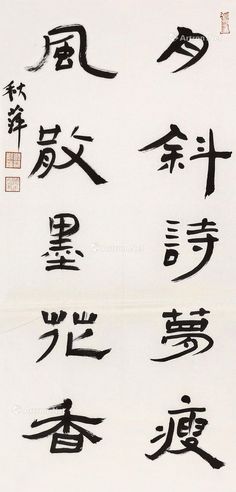 月斜詩夢瘦
風散墨花香
秋萍